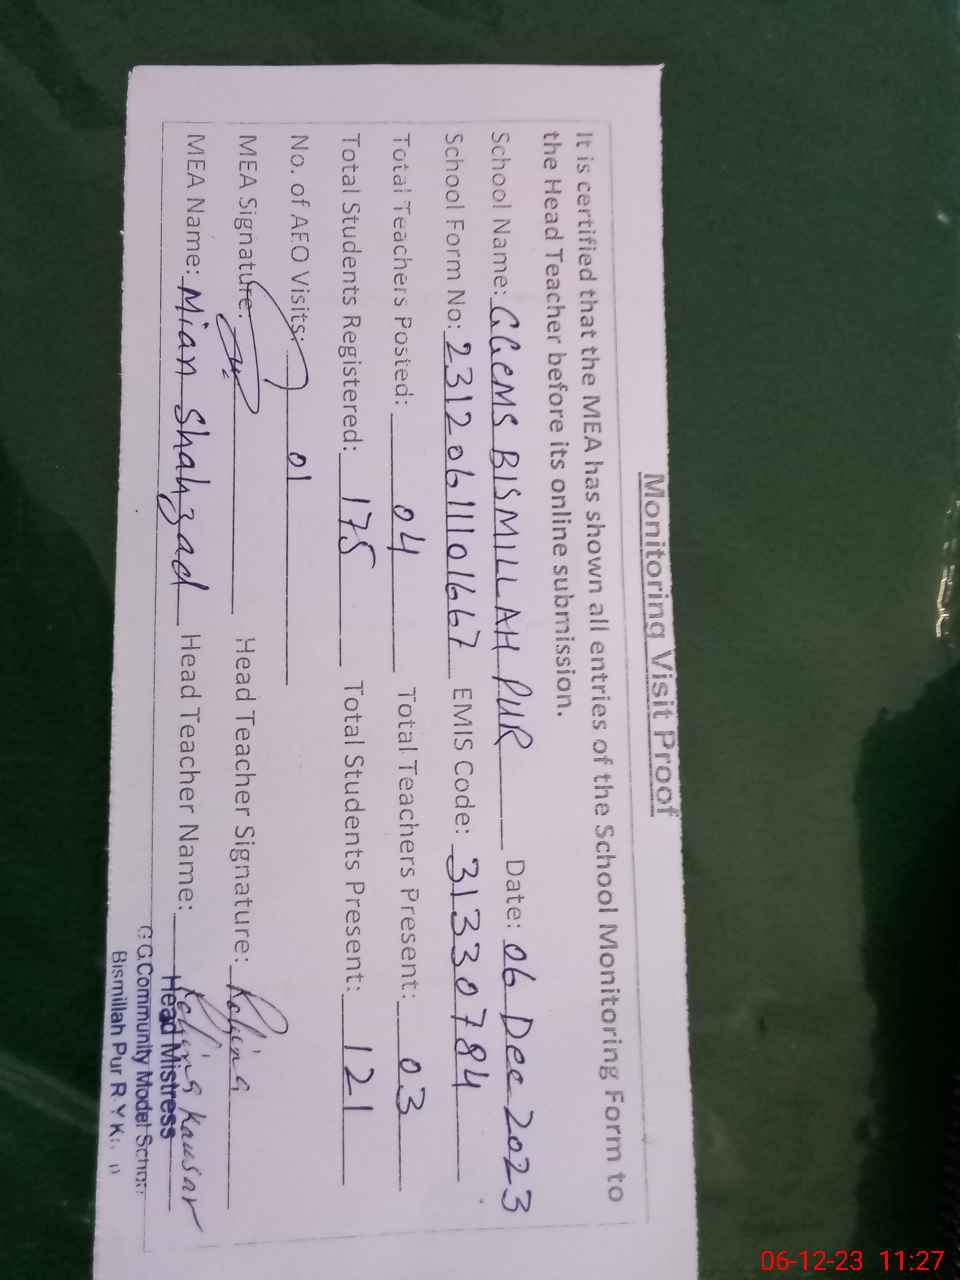 Monitoring Visit Proof
It is certified that the MEA has shown all entries of the School Monitoring Form to
the Head Teacher before its online submission.
School Name: GGCMS BISMILLAH PUR Date: 06 Dec 2023
School Form No: 23120611101667 EMIS Code: 31330784
Total Teachers Posted: 04 Total Teachers Present: 03
Total Students Registered: 175 Total Students Present: 121
No. of AEO Visits: 01
MEA Signature: Head Teacher Signature: Robina
MEA Name: Mian Shahzad Head Teacher Name: Robina Kausar
Head Mistress
G.G.Community Model School
Bismillah Pur R.Y.K
06-12-23 11:27